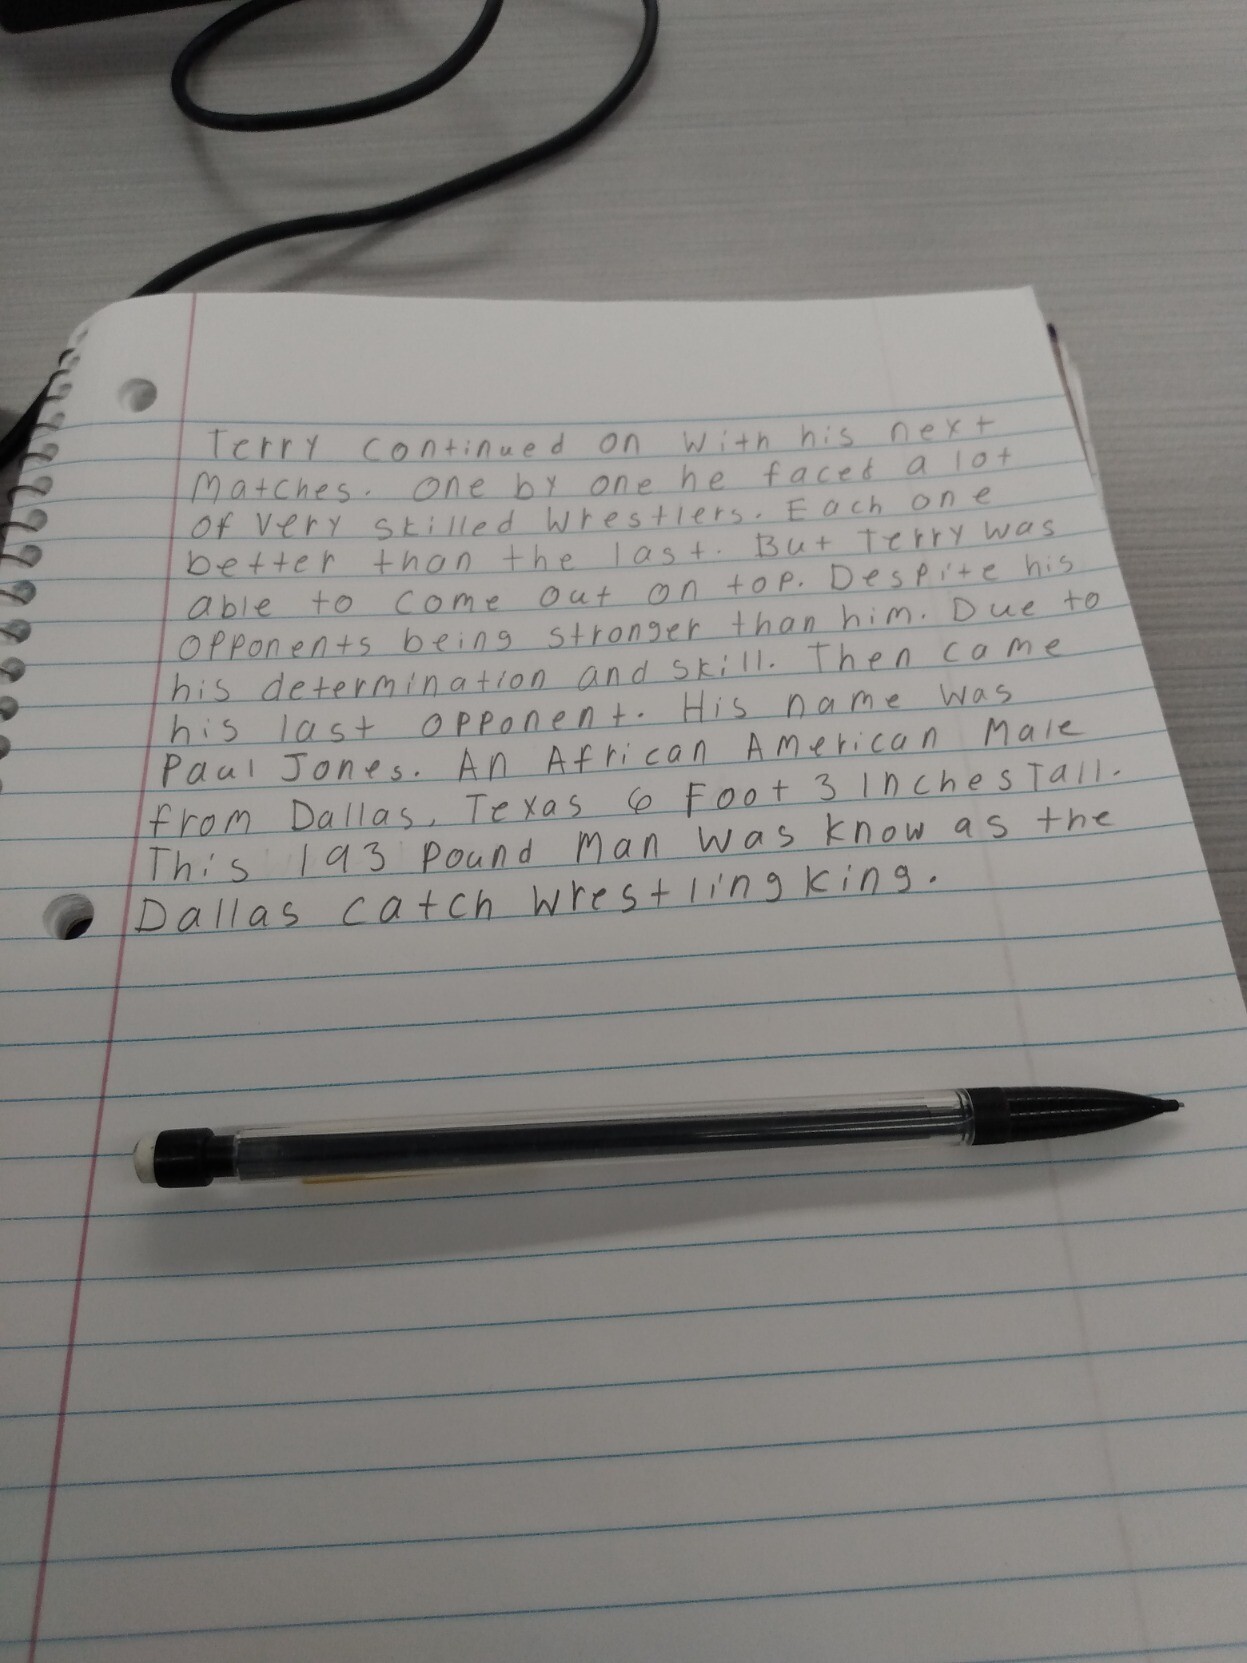 Terry continued on with his next
matches. One by one he faced a lot
of very skilled wrestlers. Each one
better than the last. But Terry was
able to come out on top. Despite his
opponents being stronger than him. Due to
his determination and skill. Then came
his last opponent. His name was
Paul Jones. An African American Male
from Dallas, Texas 6 Foot 3 Inches Tall.
This 193 pound Man was know as the
Dallas catch wrestling king.